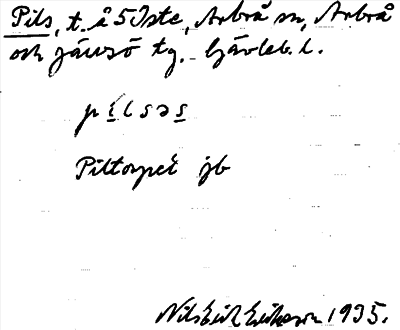 Pils, t. å 5 Iste, Arbrå sn, Arbrå
och Järvsö tg. Gävleb. l.
pilsəs
Piltorpet jb
Nils Erik Eriksson 1935.